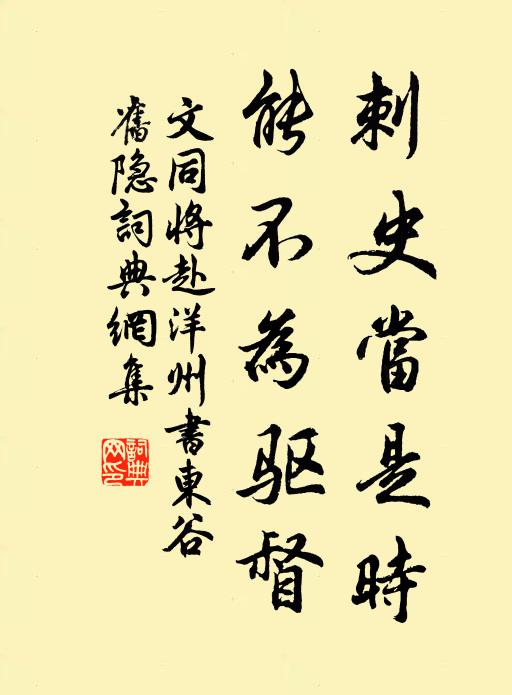 刺史當是時
能不為驱督
文同將赴洋州書東谷
舊隐詞典網集
詞典網印